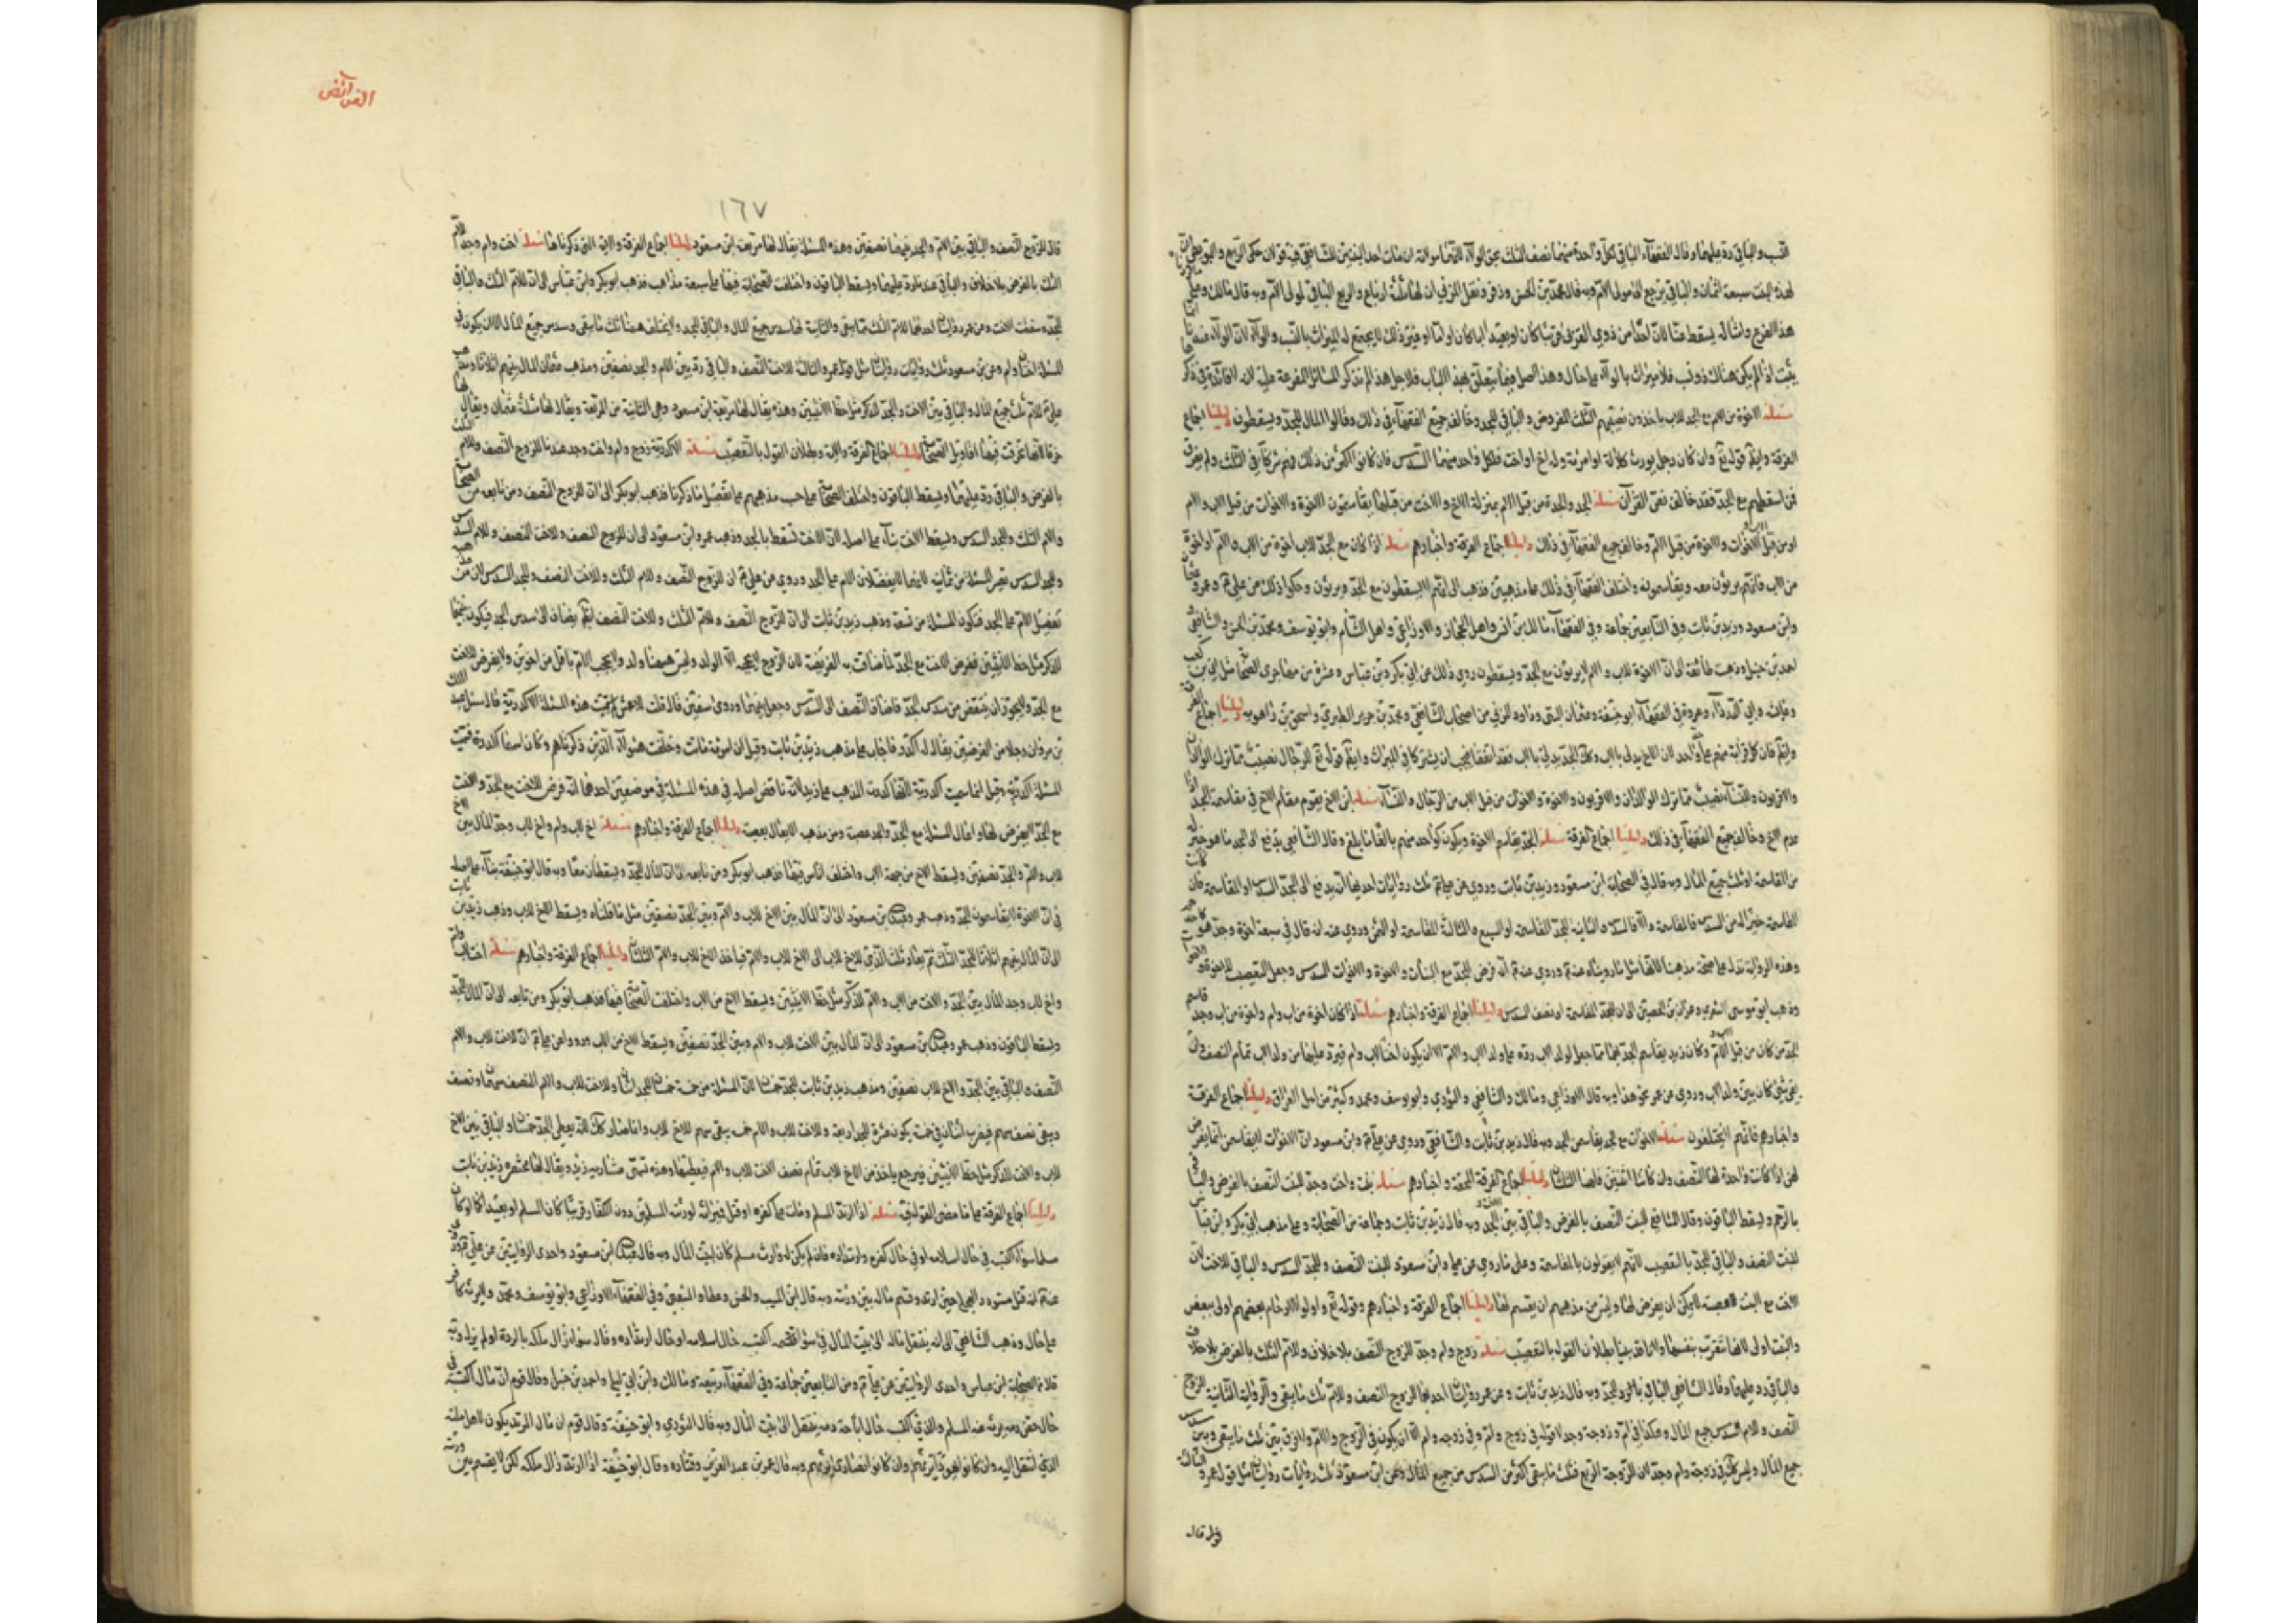 النسب والباقي رد عليهما وقال الفقهاء الباقي لكل واحدة منهما نصف الثلث بحق الولاء
لهذه البنت سبعة أثمان والباقي يرجع الى مولى الام وبه قال محمد بن الحسن وزفر ونقل المزني ان لها ثلثة ارباع والربع الباقي لمولى الام وبه قال مالك
هذا الفرع وامثاله يسقط عنا لان احدا من ذوي القربى قريبا كان او بعيدا لا يجتمع له الميراث بالنسب والولاء لان الولاء عندنا
يثبت اذا لم يكن هناك ذو نسب فلا ميراث بالولاء على حال وهذا اصل فيما يتعلق بهذا الباب فلاجل هذا لم نذكر المسائل المفرعة عليه لانه لا فائدة في ذكر
مسئلة الاخوة من الام مع الجد للاب ياخذون نصيبهم الثلث المفروض والباقي للجد وخالف جميع الفقهاء في ذلك وقالوا المال للجد ويسقطون دليلنا اجماع
الفرقة وايضا قوله تع وان كان رجل يورث كلالة او امرئة وله اخ او اخت فلكل واحد منهما السدس فان كانوا اكثر من ذلك فهم شركاء في الثلث ولم يفرق
فمن اسقطهم مع الجد فقد خالف نص القرآن مسئلة الجد والجدة من قبل الام بمنزلة الاخ والاخت من قبلها يقاسمون الاخوة والاخوات من قبل الاب والام
او من قبل الاب والاخوات والاخوة من قبل الام وخالف جميع الفقهاء في ذلك دليلنا اجماع الفرقة واخبارهم مسئلة اذا كان مع الجد للاب اخوة من الاب والام او اخوة
من الاب فانهم يرثون معه ويقاسمونه واختلف الفقهاء في ذلك على مذهبين فذهب الى انهم لا يسقطون مع الجد ويرثون وحكوا ذلك عن علي ع وعمر
وابن مسعود وزيد بن ثابت وفي التابعين جماعة وفي الفقهاء مالك بن انس واهل الحجاز والاوزاعي واهل الشام وابو يوسف ومحمد بن الحسن والشافعي
احمد بن حنبل وذهبت طائفة الى ان الاخوة للاب والام لا يرثون مع الجد ويسقطون روي ذلك عن ابي بكر وابن عباس وعشرة من الصحابة مثل ابي بن كعب
وابي الدرداء وغيره وفي الفقهاء ابو حنيفة وعثمان البتي وداود والمزني من اصحاب الشافعي ومحمد بن جرير الطبري واسحق بن راهويه دليلنا اجماع الفرقة
والاقربون وللنساء نصيب مما ترك الوالدان والاقربون والاخوة والاخوات من قبل الاب من الرجال والنساء مسئلة ابن الاخ يقوم مقام الاخ في مقاسمة الجد اذا
عدم الاخ وخالف جميع الفقهاء في ذلك دليلنا اجماع الفرقة مسئلة الجد يقاسم الاخوة ويكون كواحد منهم بالغا ما بلغ وقال الشافعي يدفع الى الجد ما هو خير له
من المقاسمة او ثلث جميع المال وبه قال في الصحابة ابن مسعود وزيد بن ثابت وروي عن علي ع ثلث روايات احديها انه يدفع الى الجد السدس او المقاسمة فان كانت
المقاسمة خيرا له من السدس فالمقاسمة والا فالسدس والثانية للجد المقاسمة او السبع والثالثة المقاسمة او الثمن وروي عنه انه قال في سبعة اخوة وجد هو كاحدهم
وهذه الرواية تدل على صحة مذهبنا لانها مثل ما رويناه عنه ع وروي عنه ع انه فرض للجد مع البنات والاخوة والاخوات السدس وجعل التعصيب للاخوة
وذهب ابو موسى الاشعري وعمران بن الحصين الى ان للجد المقاسمة او نصف السدس دليلنا اجماع الفرقة واخبارهم مسئلة اذا كان اخوة من اب وام واخوة من اب وجد قاسم
بقي شئ كان بين ولد الاب وروي عن عمر نحو هذا وبه قال الاوزاعي ومالك والشافعي والثوري وابو يوسف ومحمد وكثير من اهل العراق دليلنا اجماع الفرقة
واخبارهم فانهم لا يختلفون مسئلة الاخوات مع الجد يقاسمن الجد وبه قال زيد بن ثابت والشافعي وروي عن علي ع وابن مسعود ان الاخوات لا يقاسمن انما يفرض
لهن اذا كانت واحدة لها النصف وان كانتا اثنتين فلهما الثلثان دليلنا اجماع الفرقة المحقة واخبارهم مسئلة بنت واخت وجد للبنت النصف بالفرض والباقي
بالرحم ويسقط الباقون وقال الشافعي للبنت النصف بالفرض والباقي بين الاخت والجد وبه قال زيد بن ثابت وجماعة من الصحابة وعلى مذهب ابي بكر وابن عباس
للبنت النصف والباقي للجد بالتعصيب لانهم لا يقولون بالمقاسمة وعلى ما روي عن علي وابن مسعود للبنت النصف وللجد السدس والباقي للاخت لان
الاخت مع البنت عصبة لا يمكن ان يفرض لها وليس من مذهبهم ان يقسم لها دليلنا اجماع الفرقة واخبارهم وقوله تع واولوا الارحام بعضهم اولى ببعض
والبنت اولى لانها تتقرب بنفسها ولانا قد بينا بطلان القول بالتعصيب مسئلة زوج وام وجد للزوج النصف بلا خلاف وللام الثلث بالفرض بلا خلاف
والباقي رد عليها وقال الشافعي الباقي للجد وبه قال زيد بن ثابت وعن عمر روايتان احديهما للزوج النصف وللام ثلث ما يبقى والرواية الثانية للزوج
النصف وللام السدس جميع المال وهكذا في ام وزوجة وجد لا قوله في زوج وام وفي زوجة وام الا ان يكون في الزوج والام لا فرق بين ثلث ما يبقى وبين سدس
جميع المال وليس كك في زوجة وام وجد لان للزوجة الربع فثلث ما يبقى اكثر من السدس من جميع المال وعن ابن مسعود ثلث روايات روايتان مثل قول عمر والثالثة
الفرائض
١٦٧
قال للزوج النصف والباقي بين الام والجد بينهما نصفين وهذه المسئلة يقال لها مربعة ابن مسعود دليلنا اجماع الفرقة والاية التي ذكرناها مسئلة اخت وام وجد للام
الثلث بالفرض بلا خلاف والباقي عندنا رد عليها ويسقط الباقون واختلفت الصحابة فيها على سبعة مذاهب فذهب ابو بكر وابن عباس الى ان للام الثلث والباقي
للجد وسقطت الاخت وعن عمر روايتان احدهما للام ثلث ما يبقى والثانية لها سدس جميع المال والباقي للجد ولا يختلف ههنا ثلث ما يبقى وسدس جميع المال الا ان يكون في
المسئلة اختان وام وعن ابن مسعود ثلث روايات روايتان مثل قول عمر والثالثة للاخت النصف والباقي رد بين الام والجد نصفين ومذهب عثمان المال بينهم اثلاثا ومذهب
علي ع للام ثلث جميع المال والباقي بين الاخت والجد للذكر مثل حظ الانثيين وهذه يقال لها مربعة ابن مسعود وهي الثانية من المربعة ويقال لها مثلثة عثمان ويقال لها
خرقا لانها تخرقت فيها اقاويل الصحابة دليلنا اجماع الفرقة والاية وبطلان القول بالتعصيب مسئلة الاكدرية زوج وام واخت وجد عندنا للزوج النصف وللام الثلث
بالفرض والباقي رد عليها ويسقط الباقون واختلف الصحابة على حسب مذهبهم على تفصيل ما ذكرنا فذهب ابو بكر الى ان للزوج النصف ومن تابعه من الصحابة
وللام الثلث وللجد السدس ويسقط الاخت بناء على اصله لان الاخت تسقط بالجد وذهب عمر وابن مسعود الى ان للزوج النصف وللاخت النصف وللام السدس
وللجد السدس تصير المسئلة من ثمانية لانهما لا يفضلان الام على الجد وروي عن علي ع ان للزوج النصف وللام الثلث وللاخت النصف وللجد السدس لان مذهبه
تفضيل الام على الجد فتكون المسئلة من تسعة وذهب زيد بن ثابت الى ان للزوج النصف وللام الثلث وللاخت النصف ثم يضاف الى سدس الجد فيكون بينهما
للذكر مثل حظ الانثيين
مع الجد ولا يجوز ان ينقص من سدس الجد فاضاف النصف الى السدس وجعل بينهما وروى سفين قال قلت للاعمش لم سميت هذه المسئلة الاكدرية قال سئل عبد الملك
بن مروان رجلا من الفرضيين يقال له اكدر فاجاب على مذهب زيد بن ثابت وقيل ان امرئة ماتت وخلفت هؤلاء الذين ذكرناهم وكان اسمها اكدرة فسميت
المسئلة اكدرية وقيل انما سميت اكدرية لانها كدرت المذهب على زيد لانه ناقض اصله في هذه المسئلة في موضعين احدهما انه فرض للاخت مع الجد والاخت
دليلنا اجماع الفرقة واخبارهم مسئلة اخ لاب وام واخ لاب وجد المال بين الاخ
للاب والام والجد نصفين ويسقط الاخ من جهة الاب واختلف الناس فيها فذهب ابو بكر ومن تابعه الى ان المال للجد ويسقطان معا وبه قال ابو حنيفة بناء على اصله
في ان الاخوة لا يقاسمون الجد وذهب عمر وعبد الله بن مسعود الى ان المال بين الاخ للاب والام وبين الجد نصفين مثل ما قلناه ويسقط الاخ للاب وذهب زيد بن ثابت
الى ان المال بينهم اثلاثا للجد الثلث ثم يعاد ثلث الذي للاخ للاب الى الاخ للاب والام فياخذ الاخ للاب والام الثلثان دليلنا اجماع الفرقة واخبارهم مسئلة اخت لاب وام
واخ لاب وجد المال بين الجد والاخت من الاب والام للذكر مثل حظ الانثيين ويسقط الاخ من الاب واختلفت الصحابة فيها فذهب ابو بكر ومن تابعه الى ان المال للجد
ويسقط الباقون وذهب عمر وعبد الله بن مسعود الى ان المال بين الاخت للاب والام وبين الجد نصفين ويسقط الاخ من الاب وروا عن علي ع ان للاخت للاب والام
النصف والباقي بين الجد والاخ للاب نصفين ومذهب زيد بن ثابت للجد خمسان لان المسئلة من خمسة خمسان للجد وللاخت للاب والام النصف سهمان ونصف
ويبقى نصف سهم فيضرب اثنان في خمسة يكون عشرة للجد اربعة وللاخت للاب والام خمسة يبقى سهم للاخ للاب وانما صار كك لانه يعطي الجد خمسان والباقي بين الاخ
للاب والاخت للذكر مثل حظ الانثيين فيرجع ياخذ من الاخ للاب تمام نصف الاخت للاب والام فيعطيها وهذه تسمى عشارية زيد ويقال لها مختصرة زيد بن ثابت
دليلنا اجماع الفرقة على ما مضى القول فيه مسئلة اذا ارتد المسلم ومات على كفره او قتل فميراثه لورثته المسلمين دون الكفار قريبا كان المسلم او بعيدا
سلما سواء اكتسبه في حال اسلامه او في حال كفره وارتداده فان لم يكن له وارث مسلم كان لبيت المال وبه قال عبد الله بن مسعود واحدى الروايتين عن علي ع
عنه ع انه قتل مستورد العجلي حين ارتد وقسم ماله بين ورثته وبه قال ابن المسيب والحسن وعطا والشعبي وفي الفقهاء الاوزاعي وابو يوسف ومحمد
على حال وذهب الشافعي الى انه ينتقل ماله الى بيت المال فيئا سواء اكتسبه حال اسلامه او حال ارتداده وقال سواء زال ملكه بالردة او لم يزل وبه
قال في الصحابة ابن عباس واحدى الروايتين عن علي ع ومن التابعين جماعة وفي الفقهاء ربيعة ومالك وابن ابي ليلى واحمد بن حنبل وقال قوم ان مال اكتسبه في
حال حقن دمه يرثه عنه المسلم والذي اكتسبه حال اباحة دمه ينتقل الى بيت المال وبه قال الثوري وابو حنيفة وقال قوم ان مال المرتد يكون لاهل ملته
الذي انتقل اليه وان كانوا يهودا يرثهم وان كانوا نصارى يرثهم وبه قال عمر بن عبد العزيز وقتادة وقال ابو حنيفة اذا ارتد زال ملكه لكن لا يقسم بين ورثته